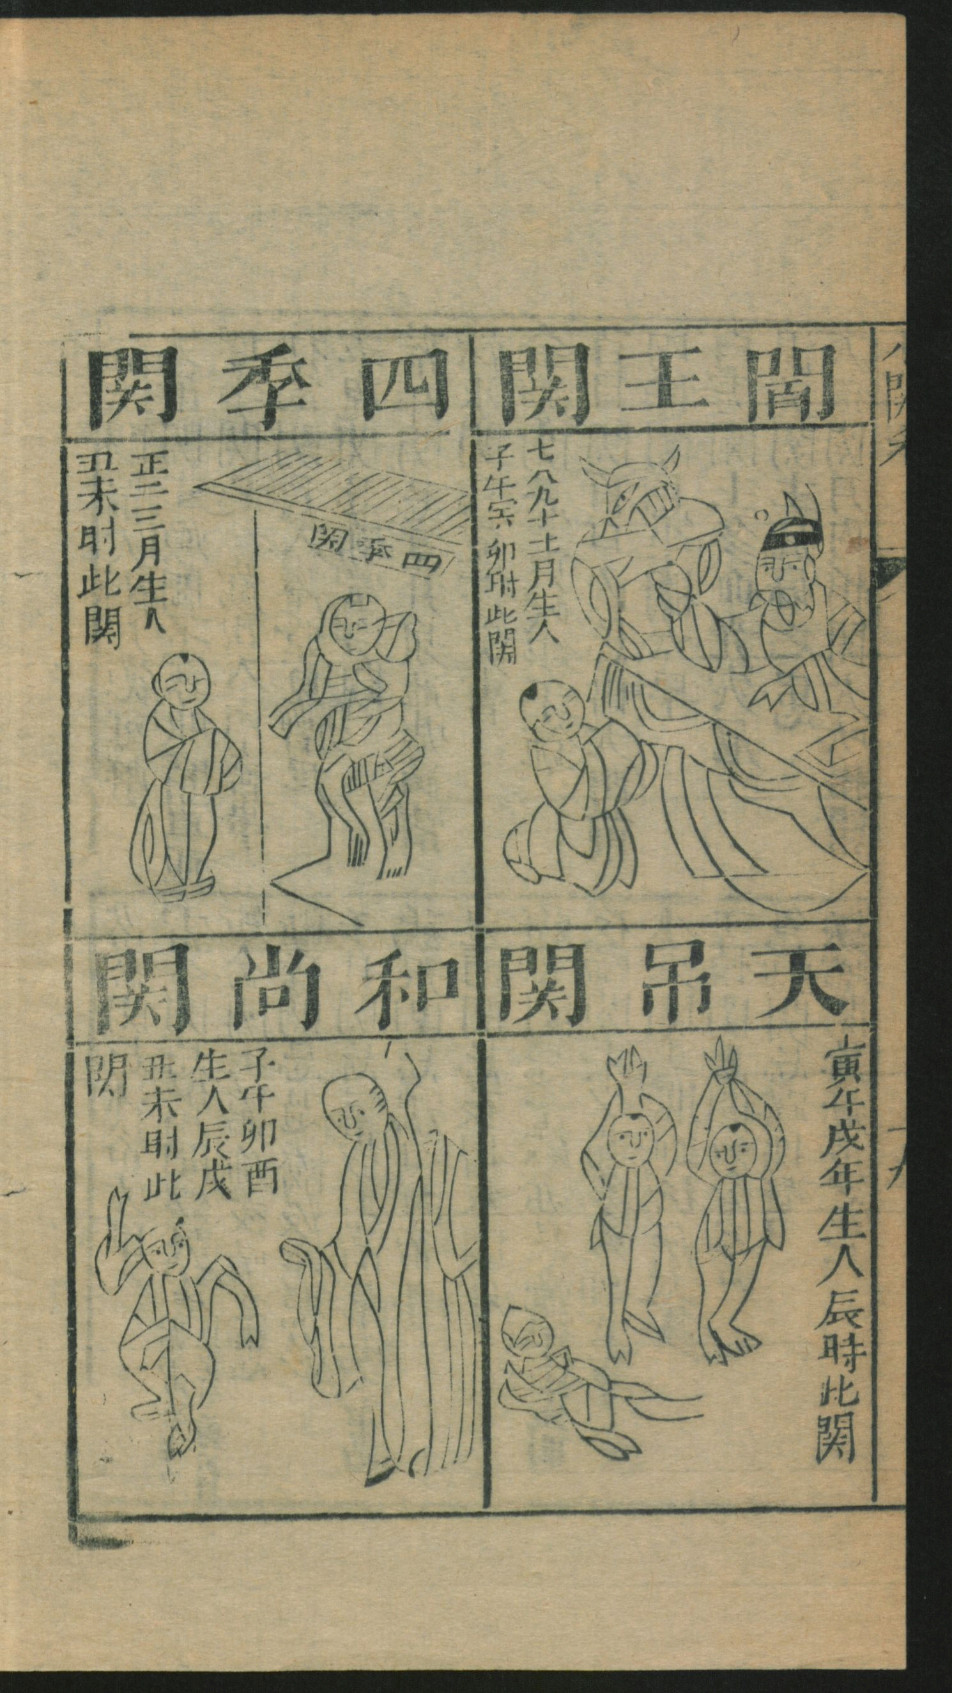 閻王關
七八九十十一月生人
子午寅卯时此関
四季關
四季関
正二三月生人
丑未时此関
天吊關
寅午戌年生人辰時此関
和尚關
子午卯酉
生人辰戌
丑未时此
関
十九